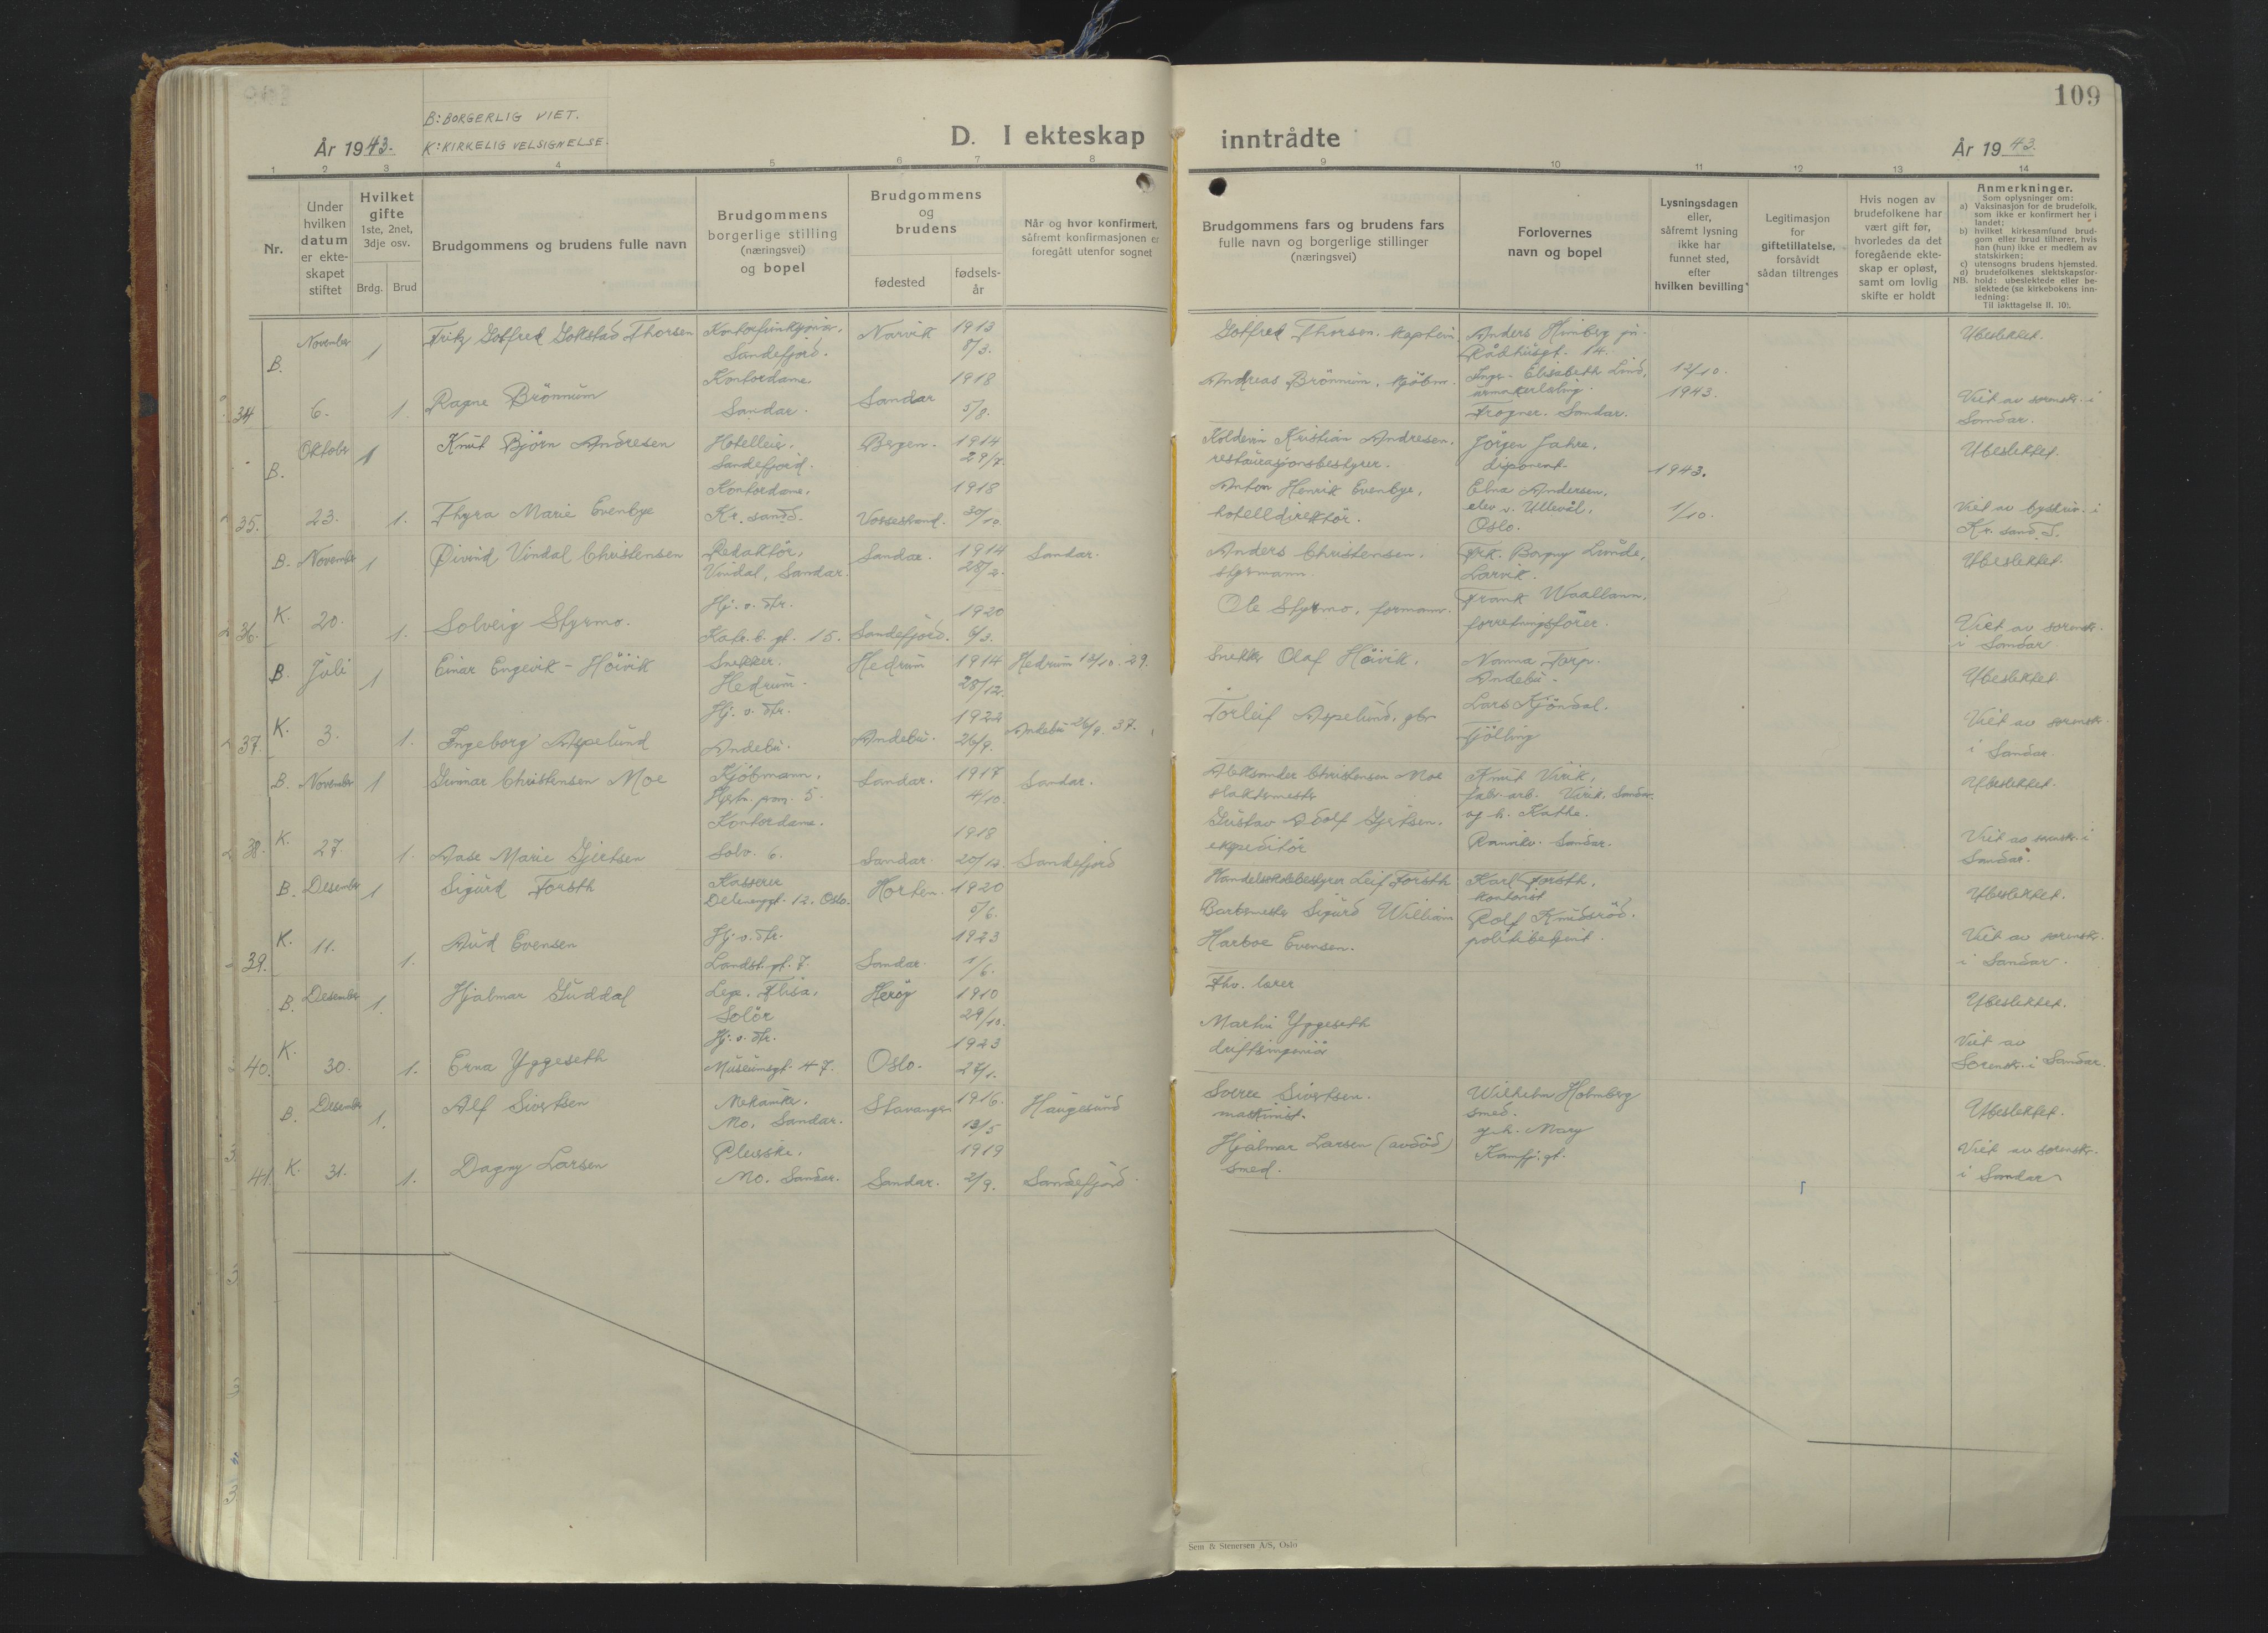 109
B: BORGERLIG VIET.
K: KIRKELIG VELSIGNELSE.
År 1943.
D. I ekteskap inntrådte
År 1943.
1 2 3 4 5 6 7 8 9 10 11 12 13 14
Nr.
Under hvilken datum er ekte-skapet stiftet
Hvilket gifte
1ste, 2net, 3dje osv.
Brdg. Brud
Brudgommens og brudens fulle navn
Brudgommens borgerlige stilling (næringsvei) og bopel
Brudgommens og brudens
fødested
fødsels-år
Når og hvor konfirmert, såfremt konfirmasjonen er foregått utenfor sognet
Brudgommens fars og brudens fars fulle navn og borgerlige stillinger (næringsvei)
Forlovernes navn og bopel
Lysningsdagen eller, såfremt lysning ikke har funnet sted, efter hvilken bevilling
Legitimasjon for giftetillatelse, forsåvidt sådan tiltrenges
Hvis nogen av brudefolkene har vært gift før, hvorledes da det foregående ekte-skap er opløst, samt om lovlig skifte er holdt
Anmerkninger.
Som oplysninger om:
a) Vaksinasjon for de brudefolk, som ikke er konfirmert her i landet;
b) hvilket kirkesamfund brud-gom eller brud tilhører, hvis han (hun) ikke er medlem av statskirken;
c) utensogns brudens hjemsted.
d) brudefolkenes slektskapsfor-hold: ubeslektede eller be-slektede (se kirkebokens inn-ledning:
NB. Til iakttagelse II. 10).
34 B. November 6. 1 Fritz Gotfred Gokstad Thorsen
Sandefjord. Narvik 1913 8/3.
Gotfred Thorsen. kaptein. Anders Himberg
Rådhusgt. 14.
12/10. 1943.
Ubeslektet.
1. Ragne Brönnum
Kontordame. Sandar. Sandar 1918 5/8.
Andreas Brönnum. kjöbm. Elisabeth Lund,
Frogner. Sandar.
Viet av sorenskr. i Sandar.
35. B. Oktober 23. 1 Knut Björn Andresen
Hotelleier. Sandefjord. Bergen. 1914 29/7.
Kristian Andresen. restaurasjonsbestyrer.
Jörgen Jahre. disponent.
1943. 1/10.
Ubeslektet.
1. Thyra Marie Evenbye
Kontordame. Kr.sand S. Vossestrand. 1918 30/10.
Anton Henrik Evenbye, hotelldirektör.
Elna Andersen. elev v. Ullevål, Oslo.
Viet av byskriv. i Kr. sand. S.
36. B. K. November 20. 1 Öivind Vindal Christensen
Redaktör, Vindal, Sandar. Sandar. 1914 28/2. Sandar.
Anders Christensen. styrmann.
Frk. Borgny Lunde, Larvik.
Ubeslektet.
1. Solveig Styrmo.
Hj. v. dtr. Katr. b. gt. 15. Sandefjord. 1920 6/3.
Ole Styrmo, formann. Frank Waallann, forretningsförer.
Viet av sorenskr. i Sandar.
37. B. K. Juli 3. 1 Einar Engevik - Höivik
Snekker. Hedrum. Hedrum 1914 28/12. Hedrum 13/10. 29.
Snekker Olaf Höivik. Nanna Torp. Andebu.
Ubeslektet.
1. Ingeborg Aspelund
Hj. v. dtr. Andebu. Andebu. 1922 26/9. Andebu 26/9. 37.
Torleif Aspelund. gbr. Lars Kjöndal. Tjölling
Viet av sorenskr. i Sandar.
38. B. K. November 27. 1 Gunnar Christensen Moe
Kjöbmann, Hjertn. prom. 5. Sandar. 1917 4/10. Sandar.
Aleksander Christensen Moe slaktermester
Knut Virik, fabr. arb. Virik. Sandar. og h. Käthe.
Ubeslektet.
1. Aase Marie Gjertsen
Kontordame. Solv. 6. Sandar. 1918 20/12. Sandefjord
Gustav Adolf Gjertsen. ekspeditör Rannikv. Sandar.
Viet av sorenskr. i Sandar.
39. B. K. Desember 11. 1 Sigurd Forsth
Kasserer Delenenggt. 12. Oslo. Horten. 1920 5/6.
Leif Forsth Karl Forsth. kontorist
Ubeslektet.
1. Aud Evensen
Hj. v. dtr. Landst. gt. 7. Sandar. 1923 1/6.
Barbermester Sigurd William Harboe Evensen.
Rolf Knudsröd. politibetjent.
Viet av sorenskr. i Sandar.
40. B. K. Desember 30. 1. Hjalmar Guddal
Lege. Flisa, Solör Heröy 1910 29/10.
Fhv. lærer
Ubeslektet.
1. Erna Yggeseth
Hj. v. dtr. Museumsgt. 47. Oslo. 1923 27/1.
Martin Yggeseth driftsingeniör
Viet av Sorenskr. i Sandar.
41. B. K. Desember 31. 1. Alf Sivertsen
Mekaniker. Mo. Sandar. Stavanger 1916. 13/5 Haugesund
Sverre Sivertsen. maskinist. Wilhelm Holmberg smed. og h. Mary
Ubeslektet.
1. Dagny Larsen
Pleierske. Mo. Sandar. Sandar. 1919 2/9. Sandefjord.
Hjalmar Larsen (avdöd) smed. Kamfj. gt.
Viet av sorenskr. i Sandar
Sem & Stenersen A/S, Oslo